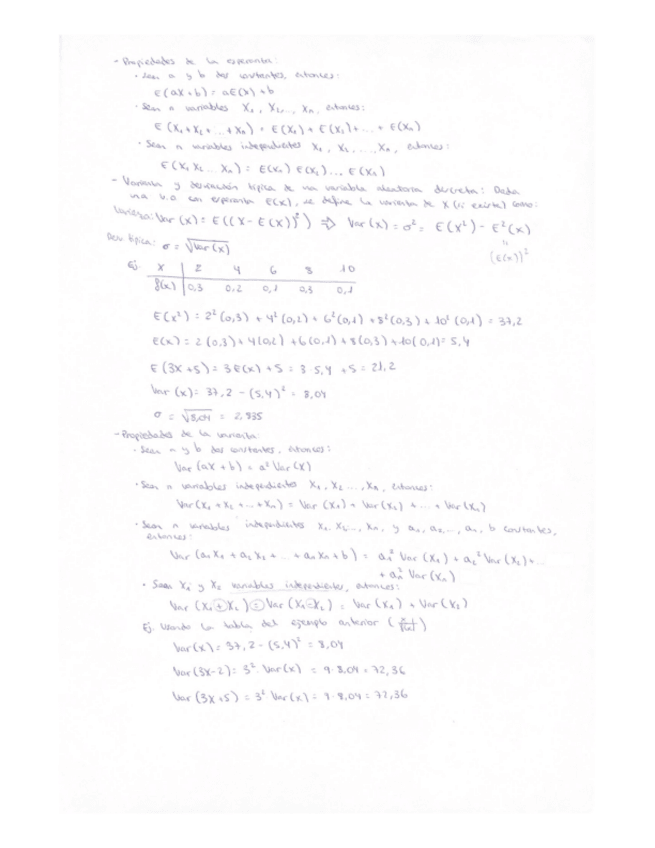 - Propiedades de la esperanza:
· Sean a y b dos constantes, entonces:
E(aX+b) = aE(X)+b
· Sean n variables X₁, X₂,..., Xₙ, entonces:
E(X₁+X₂+...+Xₙ) = E(X₁)+E(X₂)+...+E(Xₙ)
· Sean n variables independientes X₁, X₂,...,Xₙ, entonces:
E(X₁ X₂...Xₙ) = E(X₁) E(X₂)... E(Xₙ)
- Varianza y desviación típica de una variable aleatoria discreta: Dada
una v.a. con esperanza E(X), se define la varianza de X (si existe) como:
Varianza: Var(X) = E((X-E(X))²) ⇒ Var(X) = σ² = E(X²) - E²(X)
" (E(X))²
Desv típica: σ = √Var(X)
Ej. X | 2 4 6 8 10
f(x) | 0,3 0,2 0,1 0,3 0,1
E(X²) = 2²(0,3) + 4²(0,2) + 6²(0,1) + 8²(0,3) + 10²(0,1) = 37,2
E(X) = 2(0,3) + 4(0,2) + 6(0,1) + 8(0,3) + 10(0,1) = 5,4
E(3X+5) = 3E(X)+5 = 3·5,4 + 5 = 21,2
Var(X) = 37,2 - (5,4)² = 8,04
σ = √8,04 = 2,835
- Propiedades de la varianza:
· Sean a y b dos constantes, entonces:
Var(aX+b) = a² Var(X)
· Sean n variables independientes X₁, X₂...,Xₙ, entonces:
Var(X₁+X₂+...+Xₙ) = Var(X₁)+Var(X₂)+...+Var(Xₙ)
· Sean n variables independientes X₁, X₂,..., Xₙ, y a₁, a₂,..., aₙ, b constantes,
entonces:
Var(a₁X₁+a₂X₂+...+aₙXₙ+b) = a₁² Var(X₁) + a₂² Var(X₂)+...
+ aₙ² Var(Xₙ)
· Sean X₁ y X₂ variables independientes, entonces:
Var(X₁+X₂) = Var(X₁-X₂) = Var(X₁) + Var(X₂)
Ej. Usando la tabla del ejemplo anterior
Var(X) = 37,2 - (5,4)² = 8,04
Var(3X-2) = 3²·Var(X) = 9·8,04 = 72,36
Var(3X+5) = 3² Var(X) = 9·8,04 = 72,36